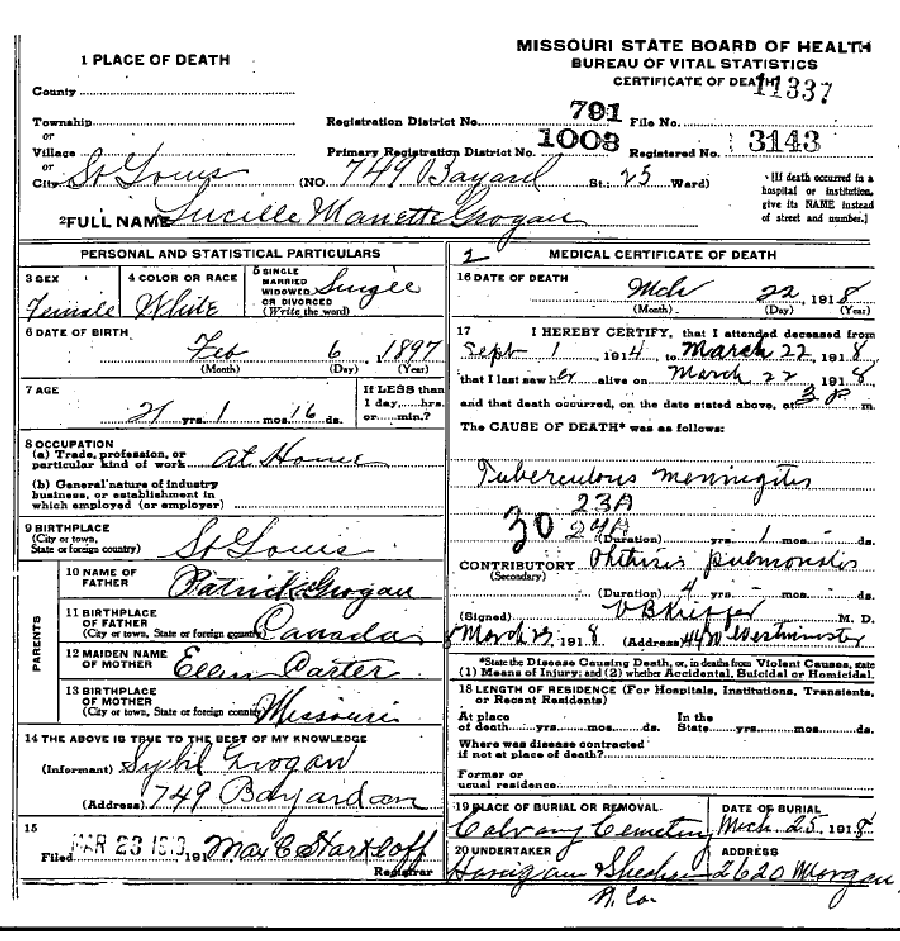 MISSOURI STATE BOARD OF HEALTH
BUREAU OF VITAL STATISTICS
CERTIFICATE OF DEATH
11337
1 PLACE OF DEATH
County
Township
or
Village
or
City St Louis
Registration District No. 791
File No.
Primary Registration District No. 1003
Registered No. 3143
(NO. 749 Bayard St.; 25 Ward)
[If death occurred in a
hospital or institution,
give its NAME instead
of street and number.]
2 FULL NAME Lucille Manette Grogan
PERSONAL AND STATISTICAL PARTICULARS
3 SEX
Female
4 COLOR OR RACE
White
5 SINGLE
MARRIED
WIDOWED
OR DIVORCED
(Write the word)
Single
6 DATE OF BIRTH
Feb 6, 1897
(Month) (Day) (Year)
7 AGE
21 yrs. 1 mos. 16 ds.
If LESS than
1 day,......hrs.
or......min.?
8 OCCUPATION
(a) Trade, profession, or
particular kind of work At Home
(b) General nature of industry
business, or establishment in
which employed (or employer)
9 BIRTHPLACE
(City or town,
State or foreign country) St Louis
PARENTS
10 NAME OF
FATHER Patrick Grogan
11 BIRTHPLACE
OF FATHER
(City or town, State or foreign country) Canada
12 MAIDEN NAME
OF MOTHER Ellen Carter
13 BIRTHPLACE
OF MOTHER
(City or town, State or foreign country) Missouri
14 THE ABOVE IS TRUE TO THE BEST OF MY KNOWLEDGE
(Informant) Sybil Grogan
(Address) 749 Bayard av
15
Filed MAR 23 191 Max C Starkloff
Registrar
2 MEDICAL CERTIFICATE OF DEATH
16 DATE OF DEATH
Mch 22, 1918
(Month) (Day) (Year)
17
I HEREBY CERTIFY, that I attended deceased from
Sept 1, 1914, to March 22, 1918,
that I last saw her alive on March 22, 1918,
and that death occurred, on the date stated above, at 3 P m.
The CAUSE OF DEATH* was as follows:
Tuberculous meningitis
23A
30 24A
(Duration) yrs. 1 mos. ds.
CONTRIBUTORY Phthisis pulmonalis
(Secondary)
(Duration) 4 yrs. - mos. ds.
(Signed) M. D.
March 23, 1918 (Address) Westminster
*State the Disease Causing Death, or, in deaths from Violent Causes, state
(1) Means of Injury; and (2) whether Accidental, Suicidal or Homicidal.
18 LENGTH OF RESIDENCE (For Hospitals, Institutions, Transients,
or Recent Residents)
At place
of death......yrs......mos......ds.
In the
State......yrs......mos......ds.
Where was disease contracted
if not at place of death?
Former or
usual residence
19 PLACE OF BURIAL OR REMOVAL
Calvary Cemetery
DATE OF BURIAL
Mch 25 1918
20 UNDERTAKER
ADDRESS
2620 Morgan